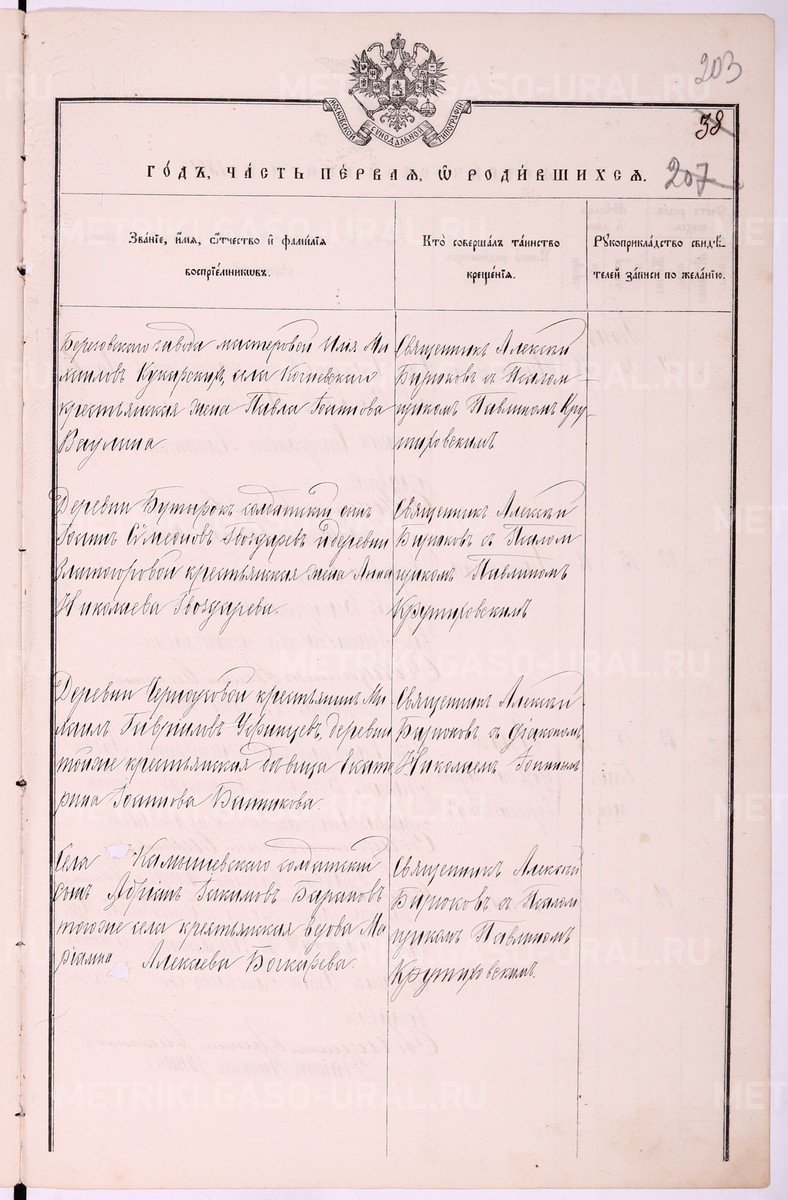 203
38
МОСКОВСКОЙ СѴНОДАЛЬНОЙ ТИПОГРАФІИ
207
ГО́ДЪ, ЧА́СТЬ ПЕ́РВАЯ, Ѡ РОДИ́ВШИХСЯ.
Зва́ніе, и́мя, ѻ́тчество и фами́лія
воспріе́мниковъ.
Кто̀ соверша́лъ та́инство
креще́нія.
Рукоприкла́дство свидѣ́-
телей за́писи по жела́нію.
завода мастеровой Илья Ми
хаиловъ Кукарскихъ, села
крестьянская жена Павла Іоаннова
Ваулина
Священникъ Алексѣй
Бирюковъ съ Псалом
щикомъ Павлиномъ Кру-
тиховскимъ
Деревни Бутырокъ солдатскій сынъ
Іоаннъ Сѵмеоновъ Гвоздаревъ и деревни
Златогоровой крестьянская жена Анна
Николаева Гвоздарева.
Священникъ Алексѣй
Бирюковъ съ Псалом
щикомъ Павлиномъ
Крутиховскимъ
Деревни Черноусовой крестьянинъ Ми
хаилъ Гавріиловъ Уфинцевъ, деревни
тойже крестьянская дѣвица Екате
рина Іоаннова
Священникъ Алексѣй
Бирюковъ съ діакономъ
Николаемъ
Села Камышевскаго солдатскій
сынъ Адріанъ Іакимовъ Барановъ
тогоже села крестьянская вдова Ма
ріамна Алексіева Бочкарева.
Священникъ Алексѣй
Бирюковъ съ Псалом
щикомъ Павлиномъ
Крутиховскимъ.
METRIKI.GASO-URAL.RU